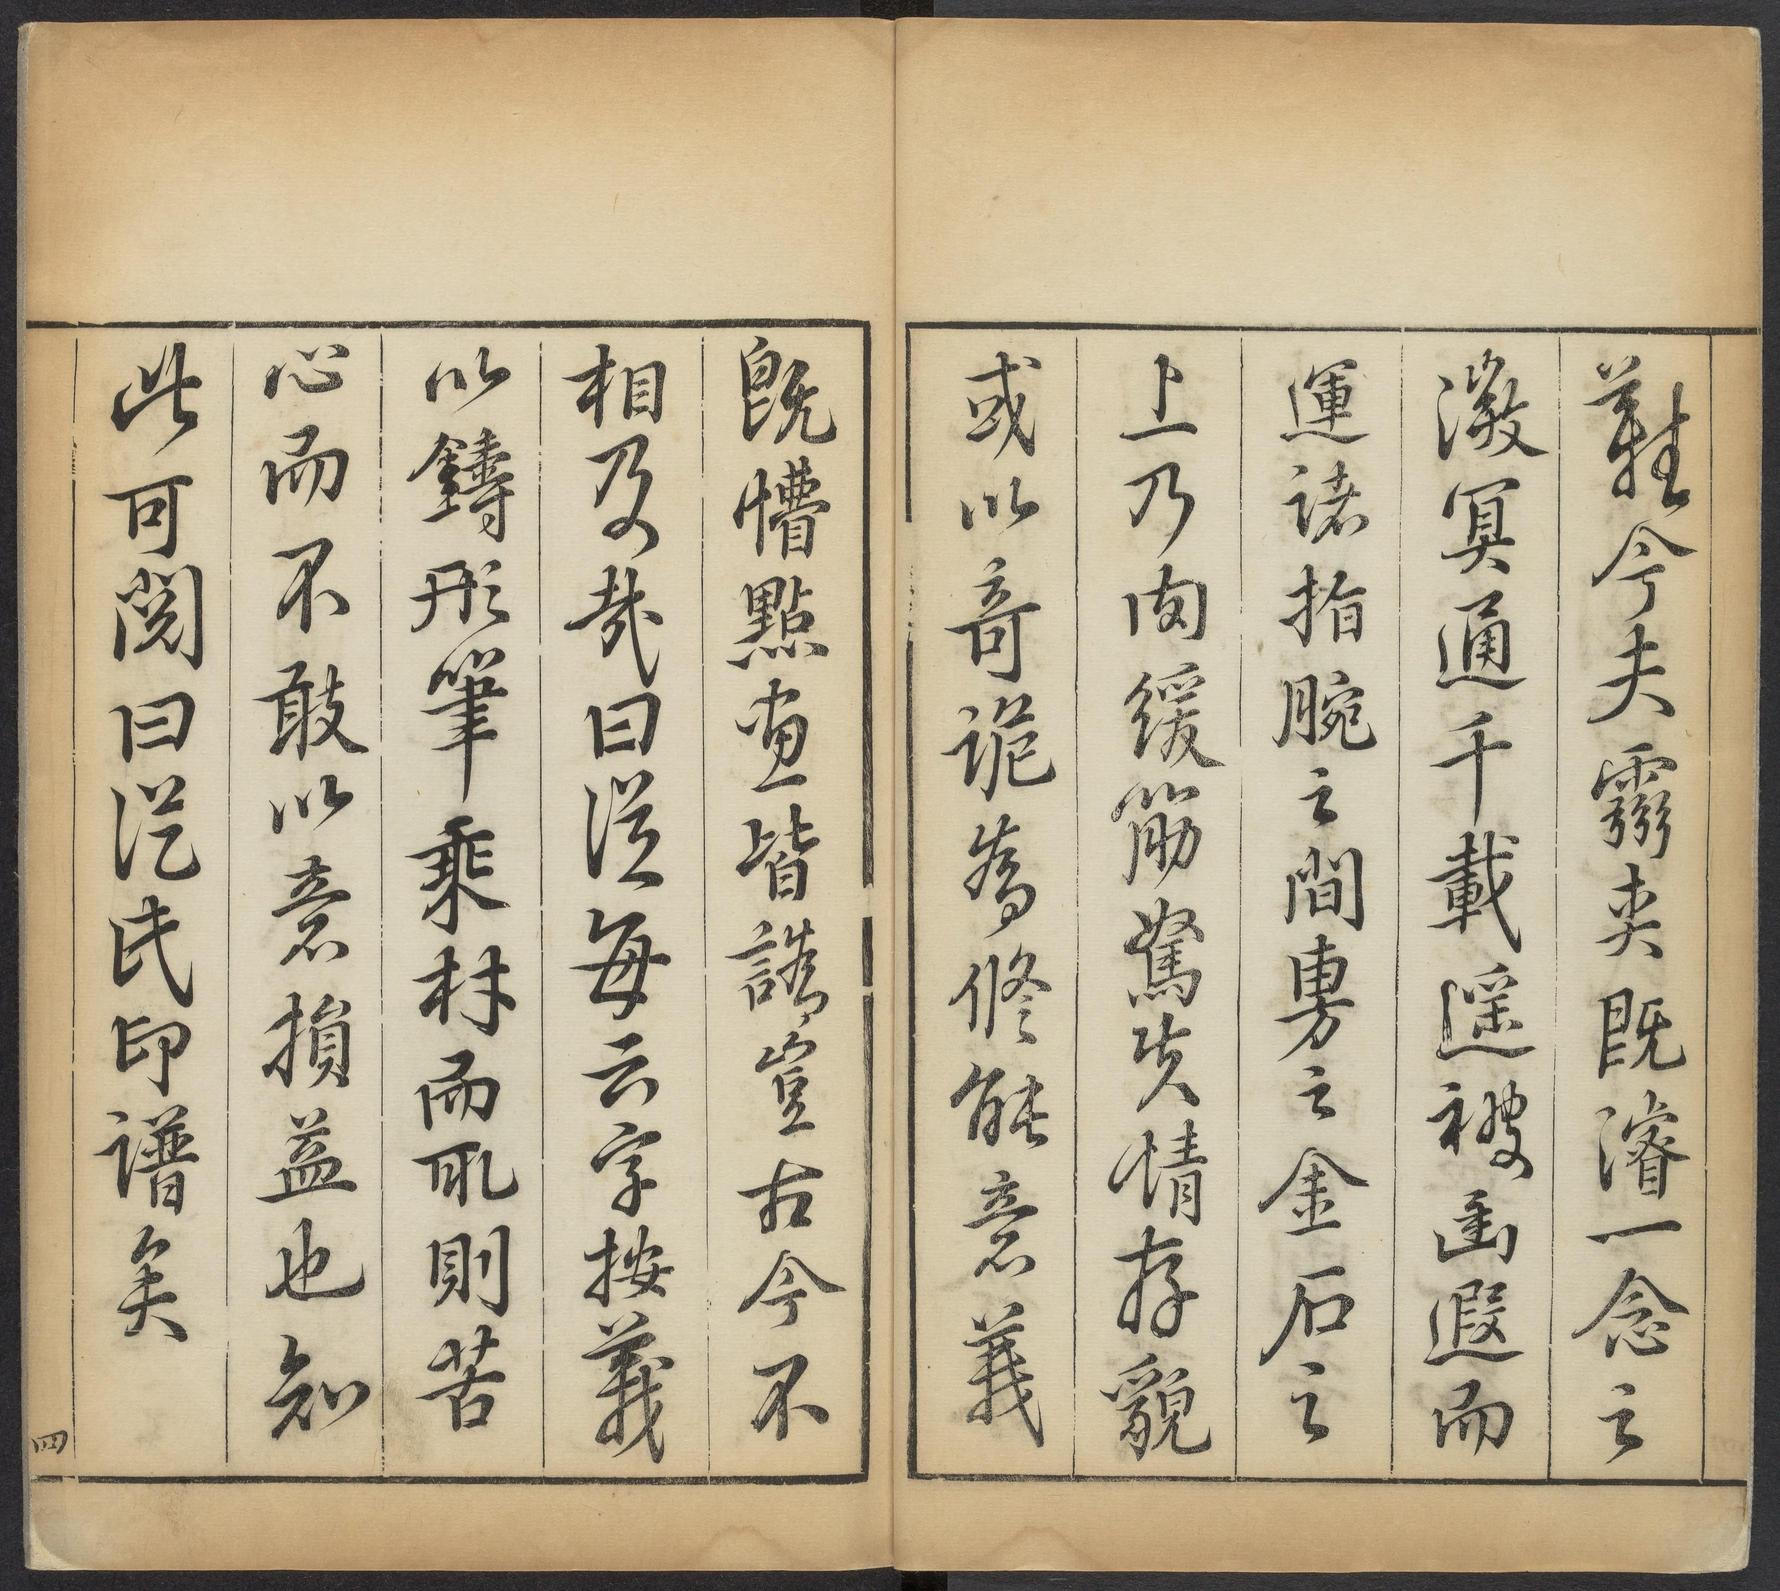 難今夫靈爽既濬一念之
澂冥通千載遥被幽遐而
運諸指腕之間旉之金石之
上乃肉緩筋駑失情存貌
或以奇詭為修能意義
既懵點畫皆譌豈古今不
相及哉曰從每云字按義
以鑄形筆乘材而耴則苦
心而不敢以意損益也知
此可閱曰從氏印譜矣
四